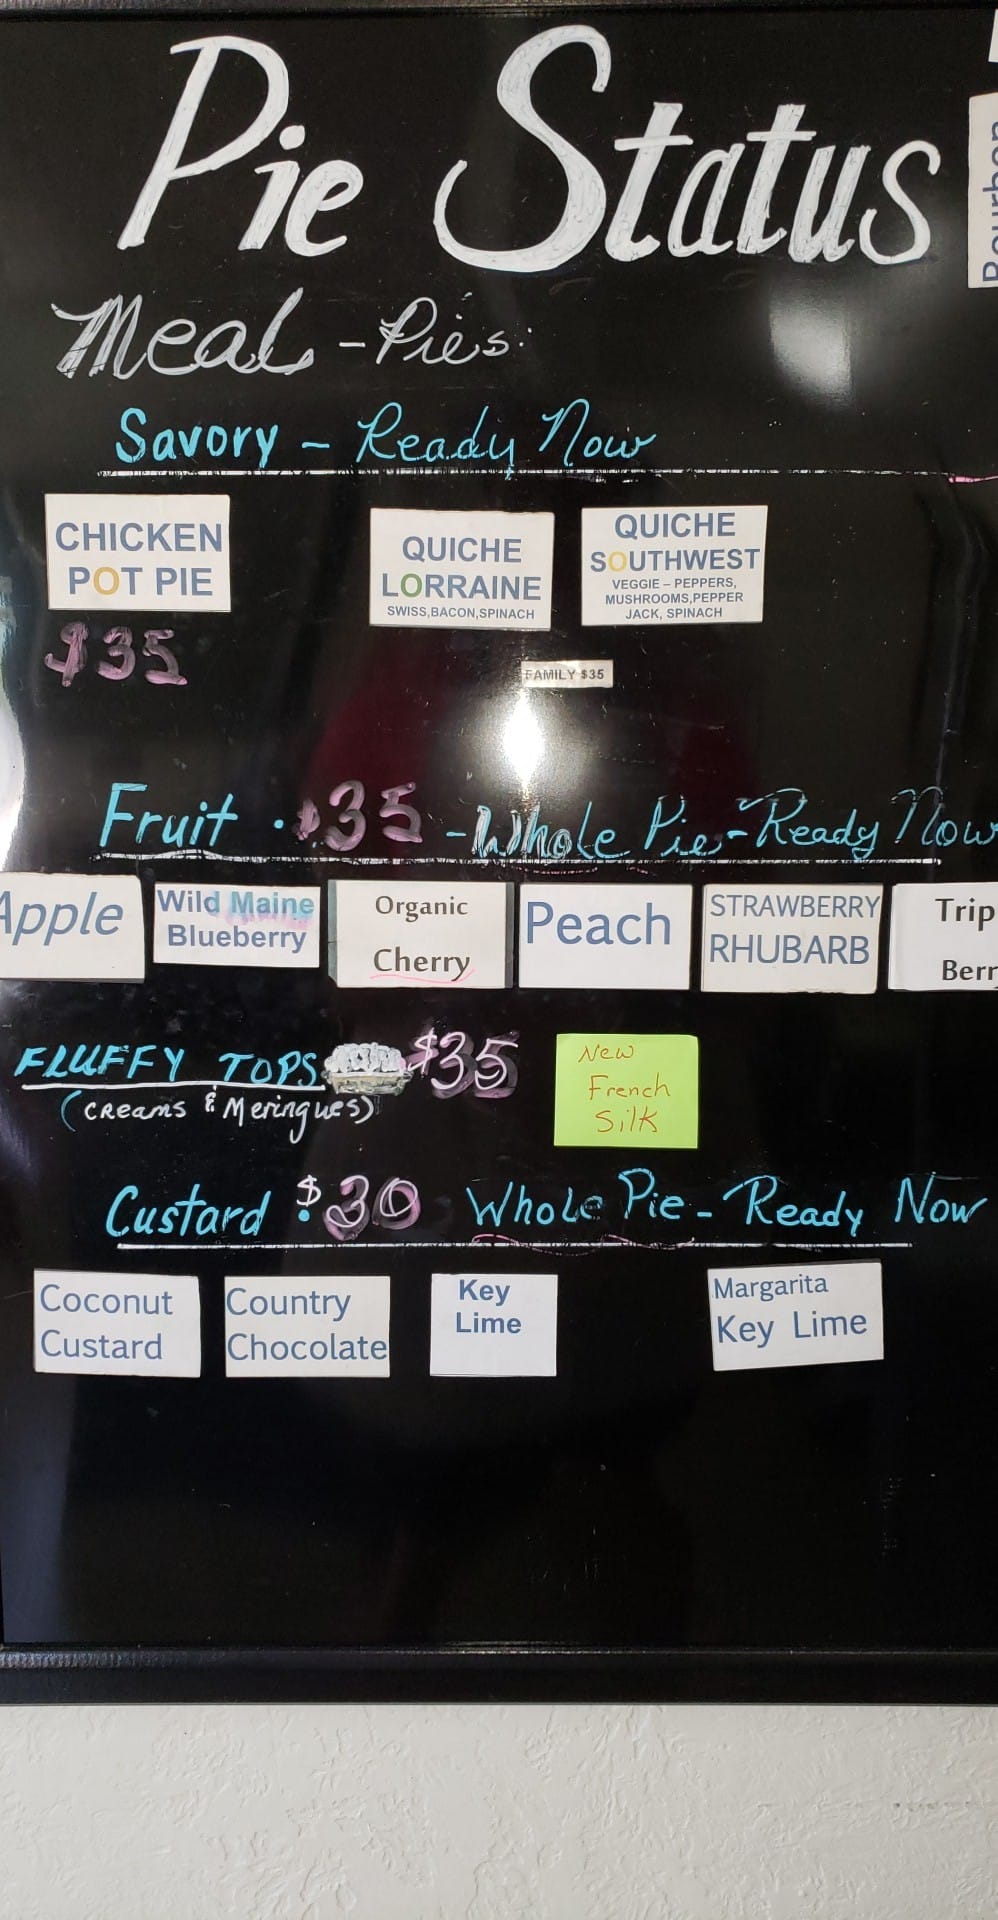 Pie Status
Bourbon
Meal - Pies:
Savory - Ready Now
CHICKEN
POT PIE
$35
QUICHE
LORRAINE
SWISS,BACON,SPINACH
QUICHE
SOUTHWEST
VEGGIE – PEPPERS,
MUSHROOMS,PEPPER
JACK, SPINACH
FAMILY $35
Fruit . $35 - Whole Pie - Ready Now
Apple
Wild Maine
Blueberry
Organic
Cherry
Peach
STRAWBERRY
RHUBARB
Trip
Berr
FLUFFY TOPS $35
(Creams & Meringues)
New
French
Silk
Custard : $30 Whole Pie - Ready Now
Coconut
Custard
Country
Chocolate
Key
Lime
Margarita
Key Lime